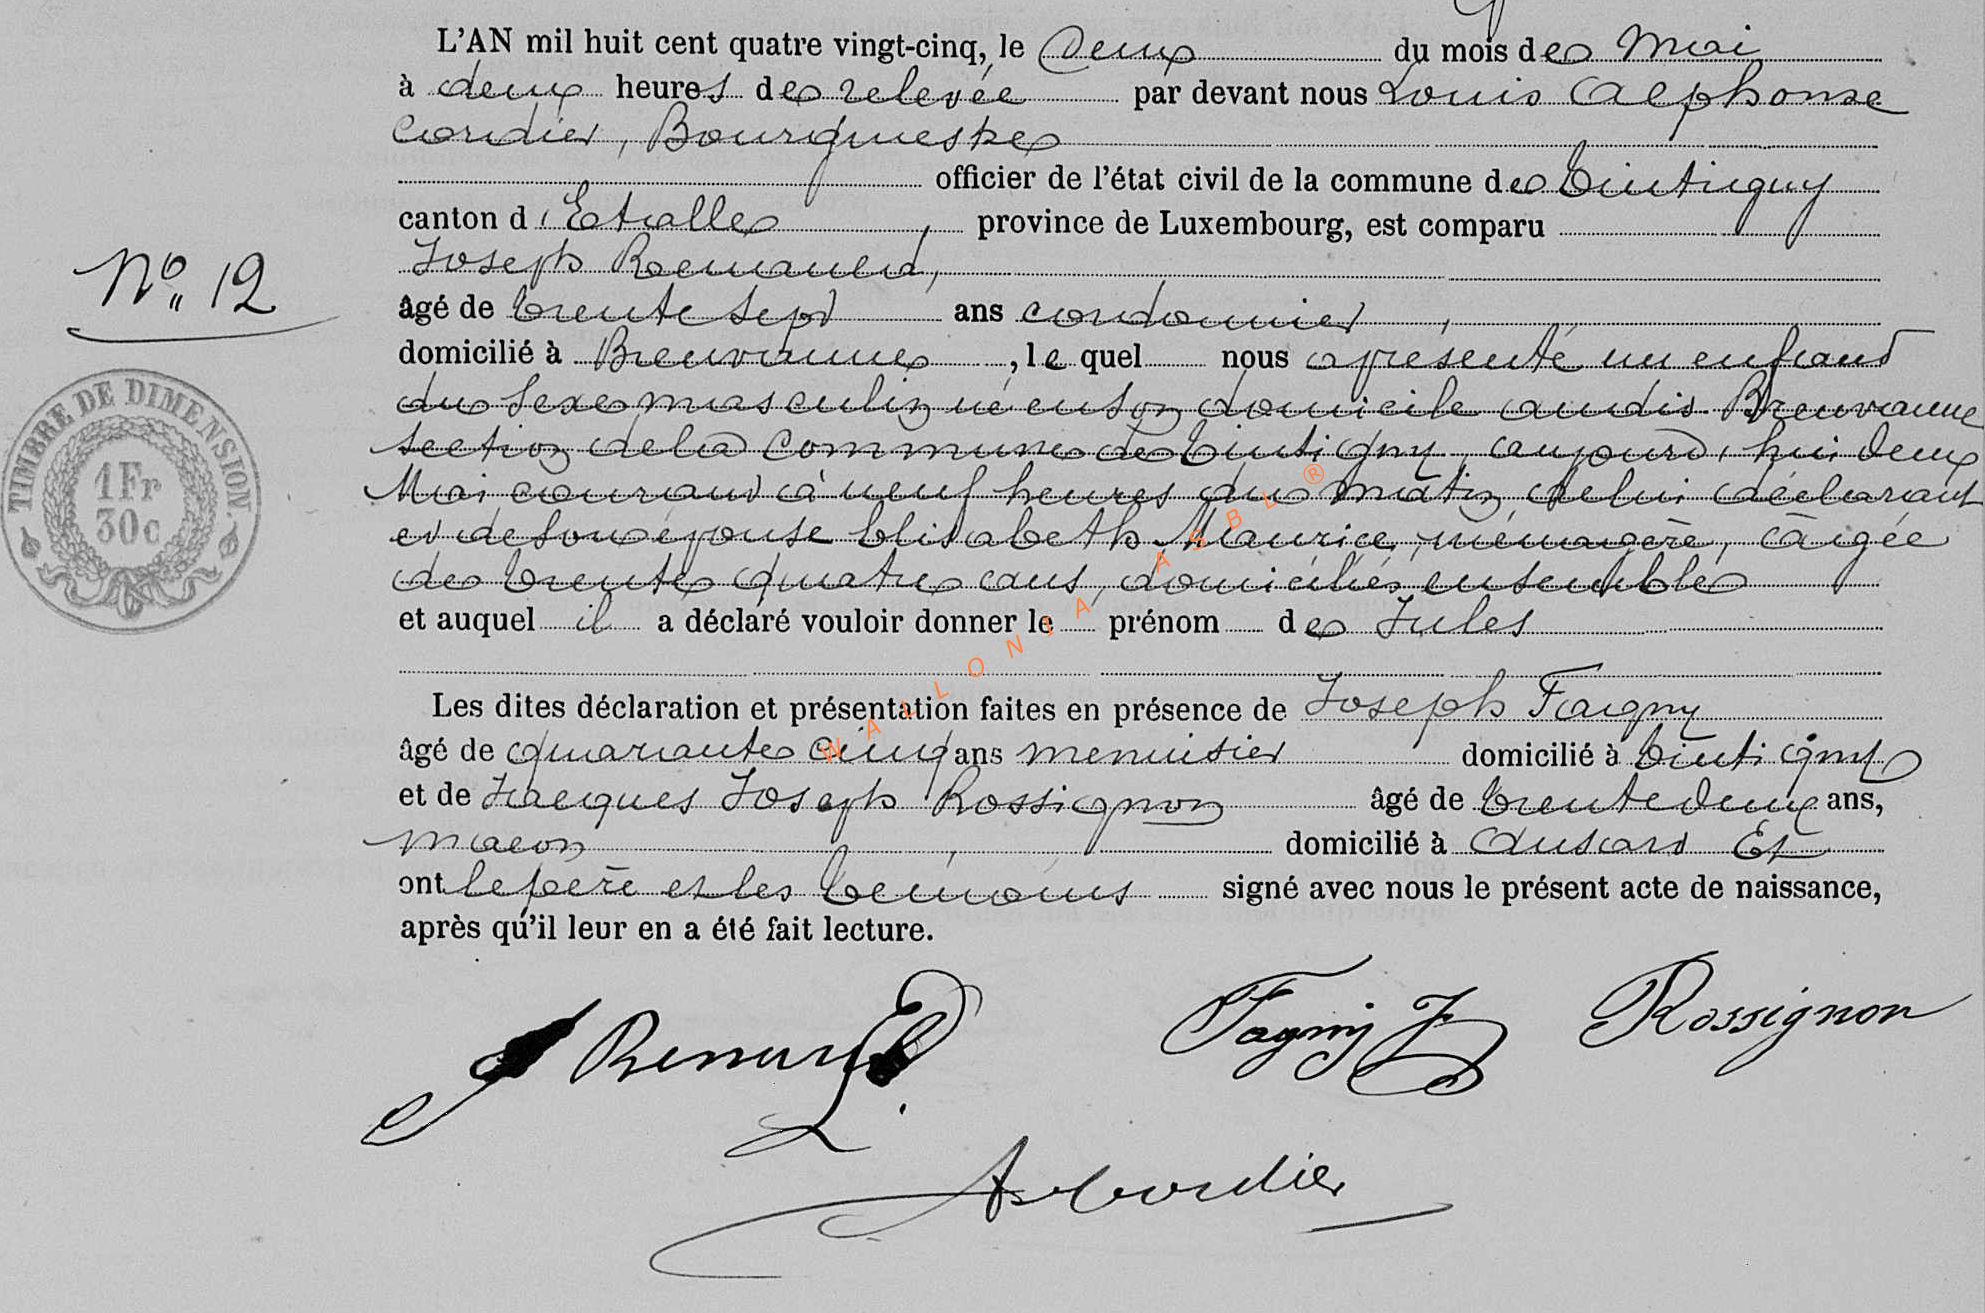 L'AN mil huit cent quatre vingt-cinq, le Deux du mois de Mai
à deux heures de relevée par devant nous Louis Alphonse
Cordier, Bourgmestre
officier de l'état civil de la commune de Tintigny
canton d'Etalle, province de Luxembourg, est comparu
Joseph
âgé de trente sept ans cordonnier,
domicilié à Breuvanne, lequel nous a présenté un enfant
du sexe masculin né en son domicile audit Breuvanne
section de la commune de Tintigny, aujourd'hui deux
Mai courant à neuf heures du matin, de lui déclarant
et de son épouse Elisabeth Maurice, ménagère, âgée
de trente quatre ans, domiciliés ensemble
et auquel il a déclaré vouloir donner le prénom de Jules
Les dites déclaration et présentation faites en présence de Joseph Fagny
âgé de quarante cinq ans menuisier domicilié à Tintigny
et de Jacques Joseph Rossignon âgé de trente deux ans,
macon, domicilié à Ansart Et
ont le père et les témoins signé avec nous le présent acte de naissance,
après qu'il leur en a été fait lecture.
N° 12
TIMBRE DE DIMENSION
1 Fr
30c
WALLONIA ASBL ®
Fagny J
Rossignon
Cordier